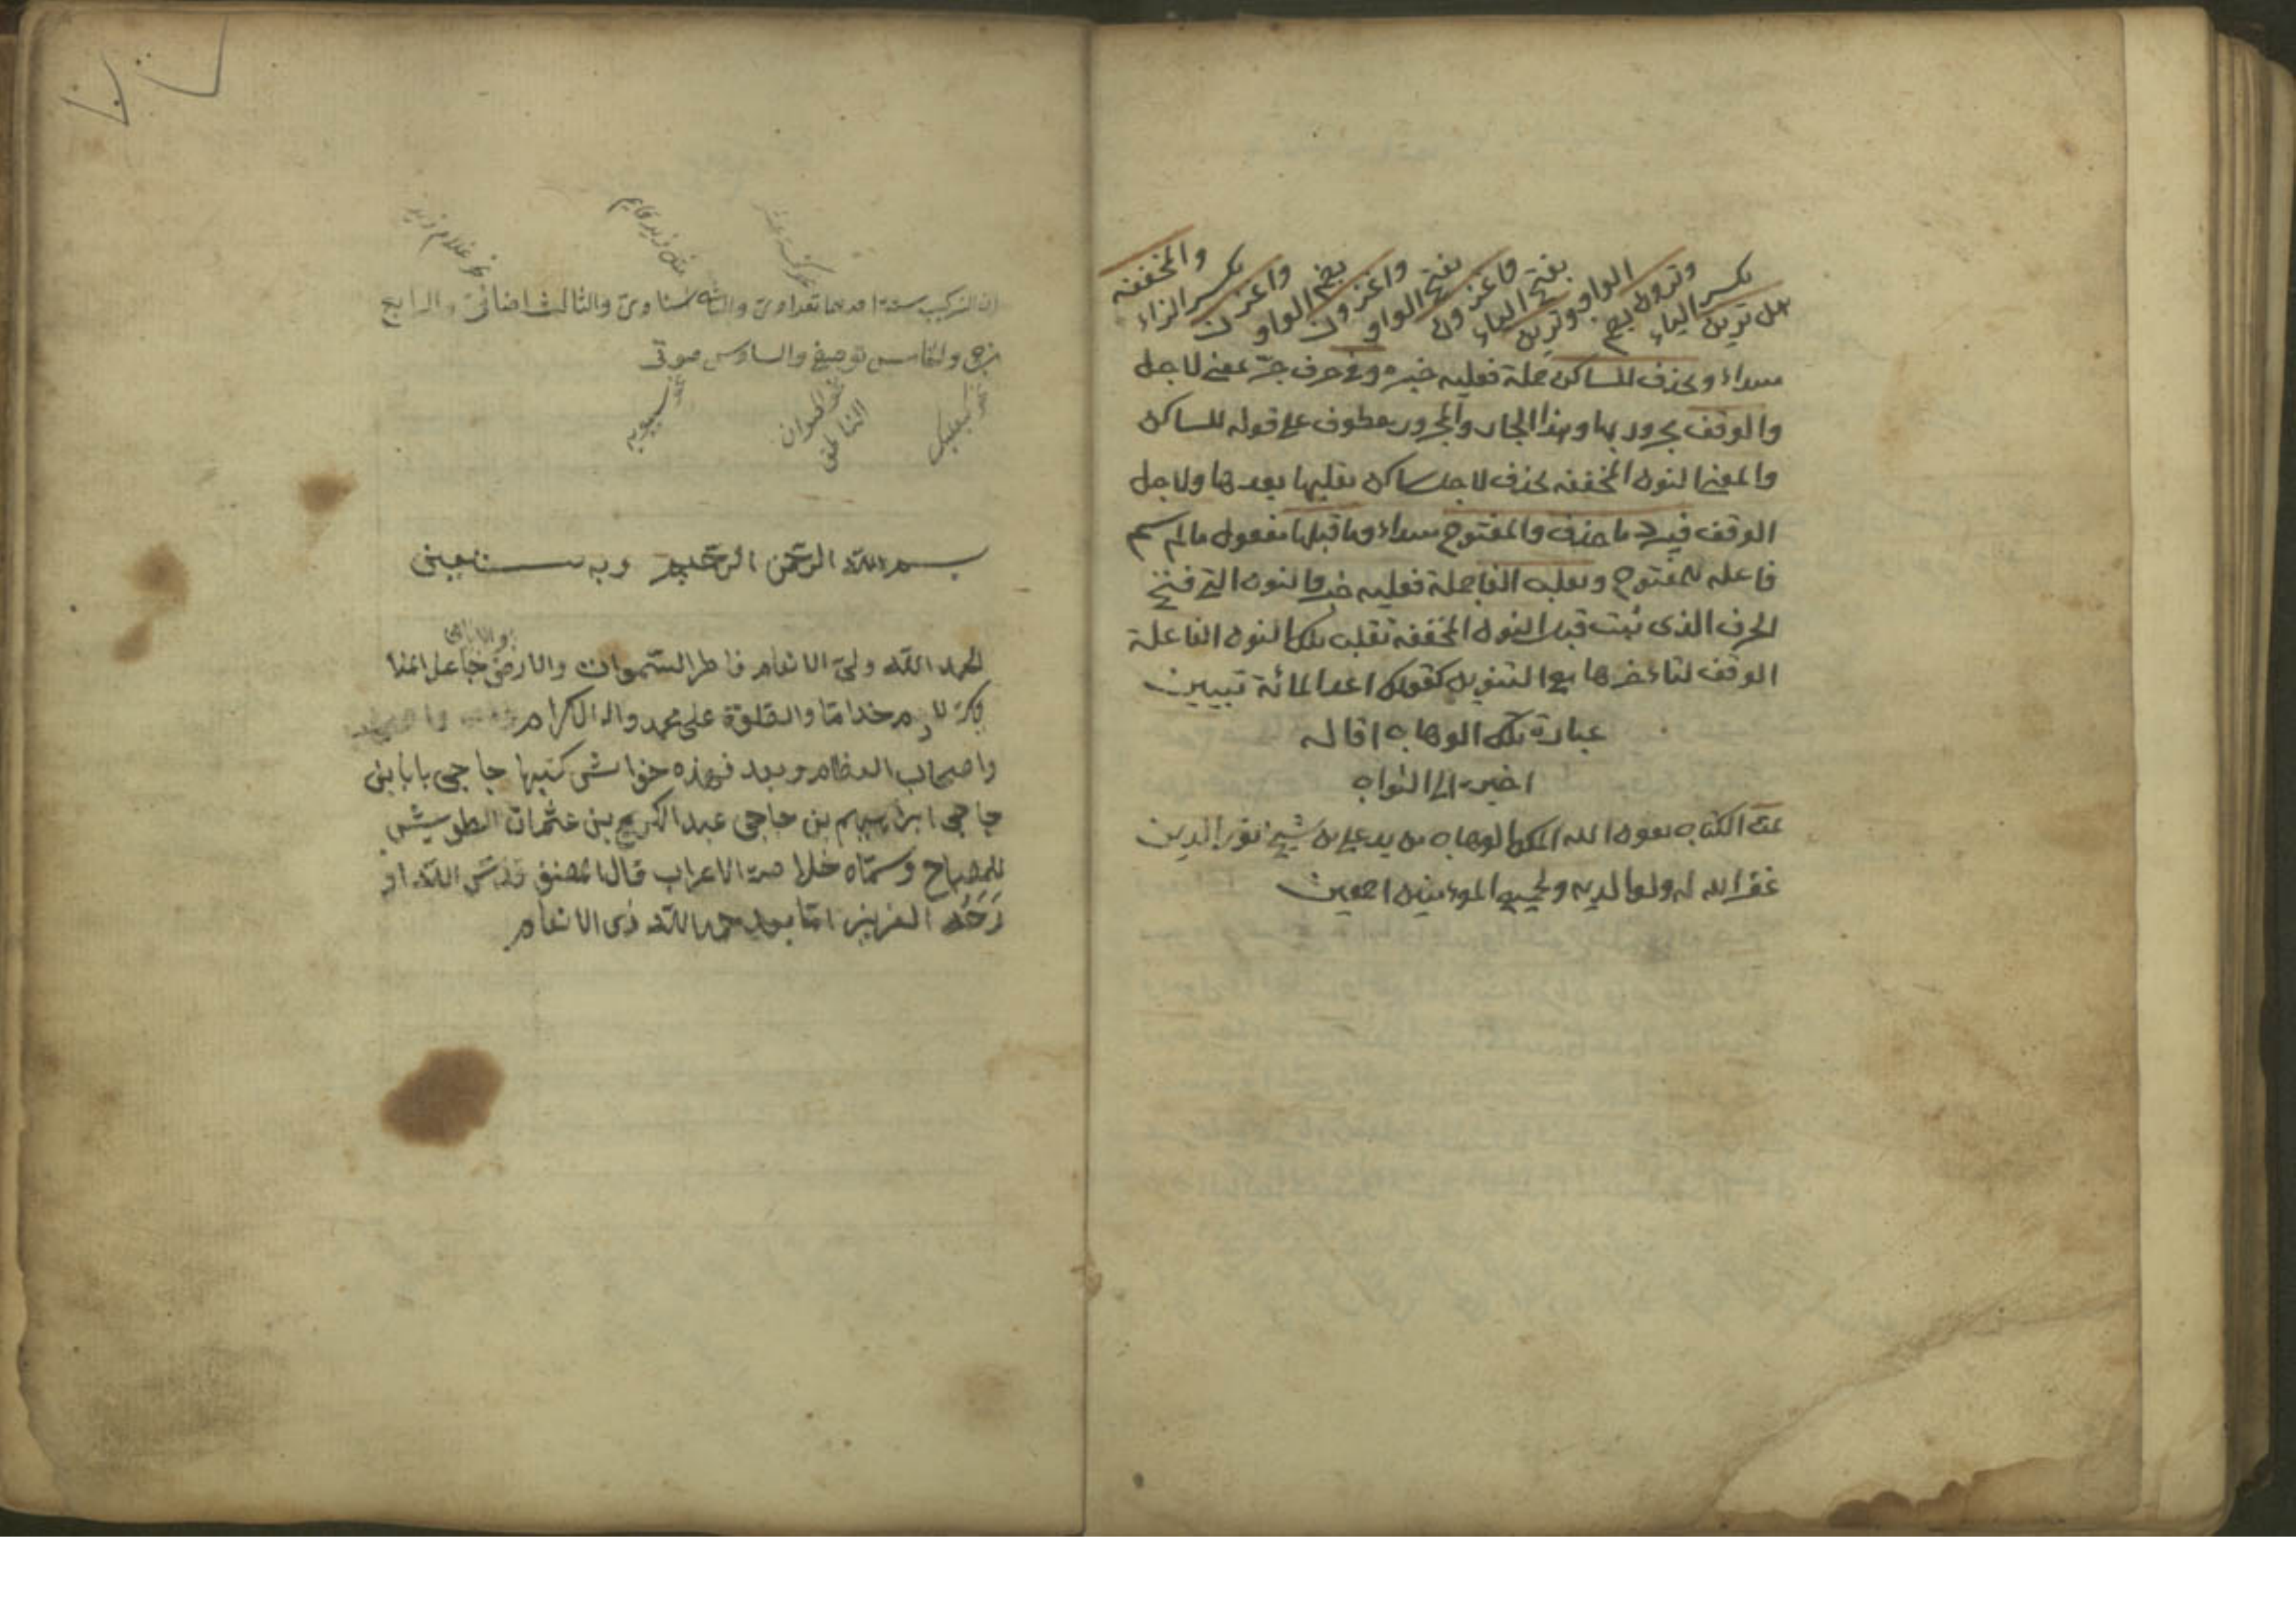 هل ترين
بكسر الياء
وترون بضم
الواو وترين
بفتح الياء
فاغزون
بفتح الواو
واغزون
بضم الواو
واغزن
بكسر الزاء
والمخففة
مبتداء وتحذف للساكن جملة فعلية خبره وفي حرف جر عفى لاجل
والوقف مجرور بها وهذا الجار والمجرور معطوف على قوله للساكن
والمعنى النون المخففة تحذف لاجل ساكن بعدها ولاجل
الوقف فيرد ما حذف والمفتوح مبتداء وما قبلها مفعول مالم يسم
فاعله للمفتوح وتقلب الفا جملة فعلية خبر والنون التي فتح
الحرف الذى ثبت قبل النون المخففة تقلب تلك النون الفا علة
الوقف لتا مع التنوين كقولك تبيين
عبارة تلك الوهاب اقاله
اخير الى الثواب
تمت الكتاب بعون الله الملك الوهاب من يد على بن شيخ نور الدين
غفر الله له ولوالديه ولجميع المؤمنين اجمعين
نحو غلام زيد
مثل زيد قايم
ان التركيب ستة احدها تعدادى والثانى اسنادى والثالث اضافى والرابع
مزجى والخامس توصيفى والسادس صوتى
نحو بعلبك
نحو الحيوان الناطق
نحو سيبويه
بسم الله الرحمن الرحيم وبه نستعين
الحمد الله ولى الانعام فاطر السموات والارض جاعل
خداما والصلوة على محمد واله الكرام
واصحاب العظام وبعد فهذه حواشى كتبها حاجى بابا بن
حاجى ابراهيم بن حاجى عبد الكريم بن عثمان الطوسيى
للمصباح وسماه خلاصة الاعراب قال المصنف قدس الله
رَحَه العزيز اما بعد حمد الله ذى الانعام